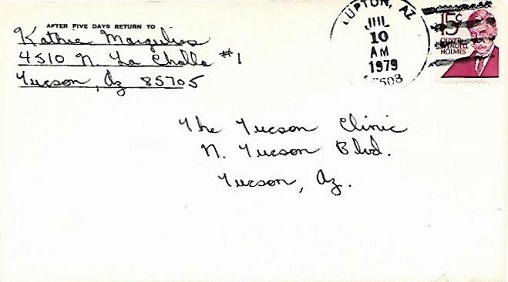 AFTER FIVE DAYS RETURN TO
Kathie Margulies
4510 N. La Cholla #1
Tucson, Az 85705
LUPTON, AZ
JUL
10
AM
1979
15c
OLIVER
WENDELL
HOLMES
The Tucson Clinic
N. Tucson Blvd.
Tucson, Az.